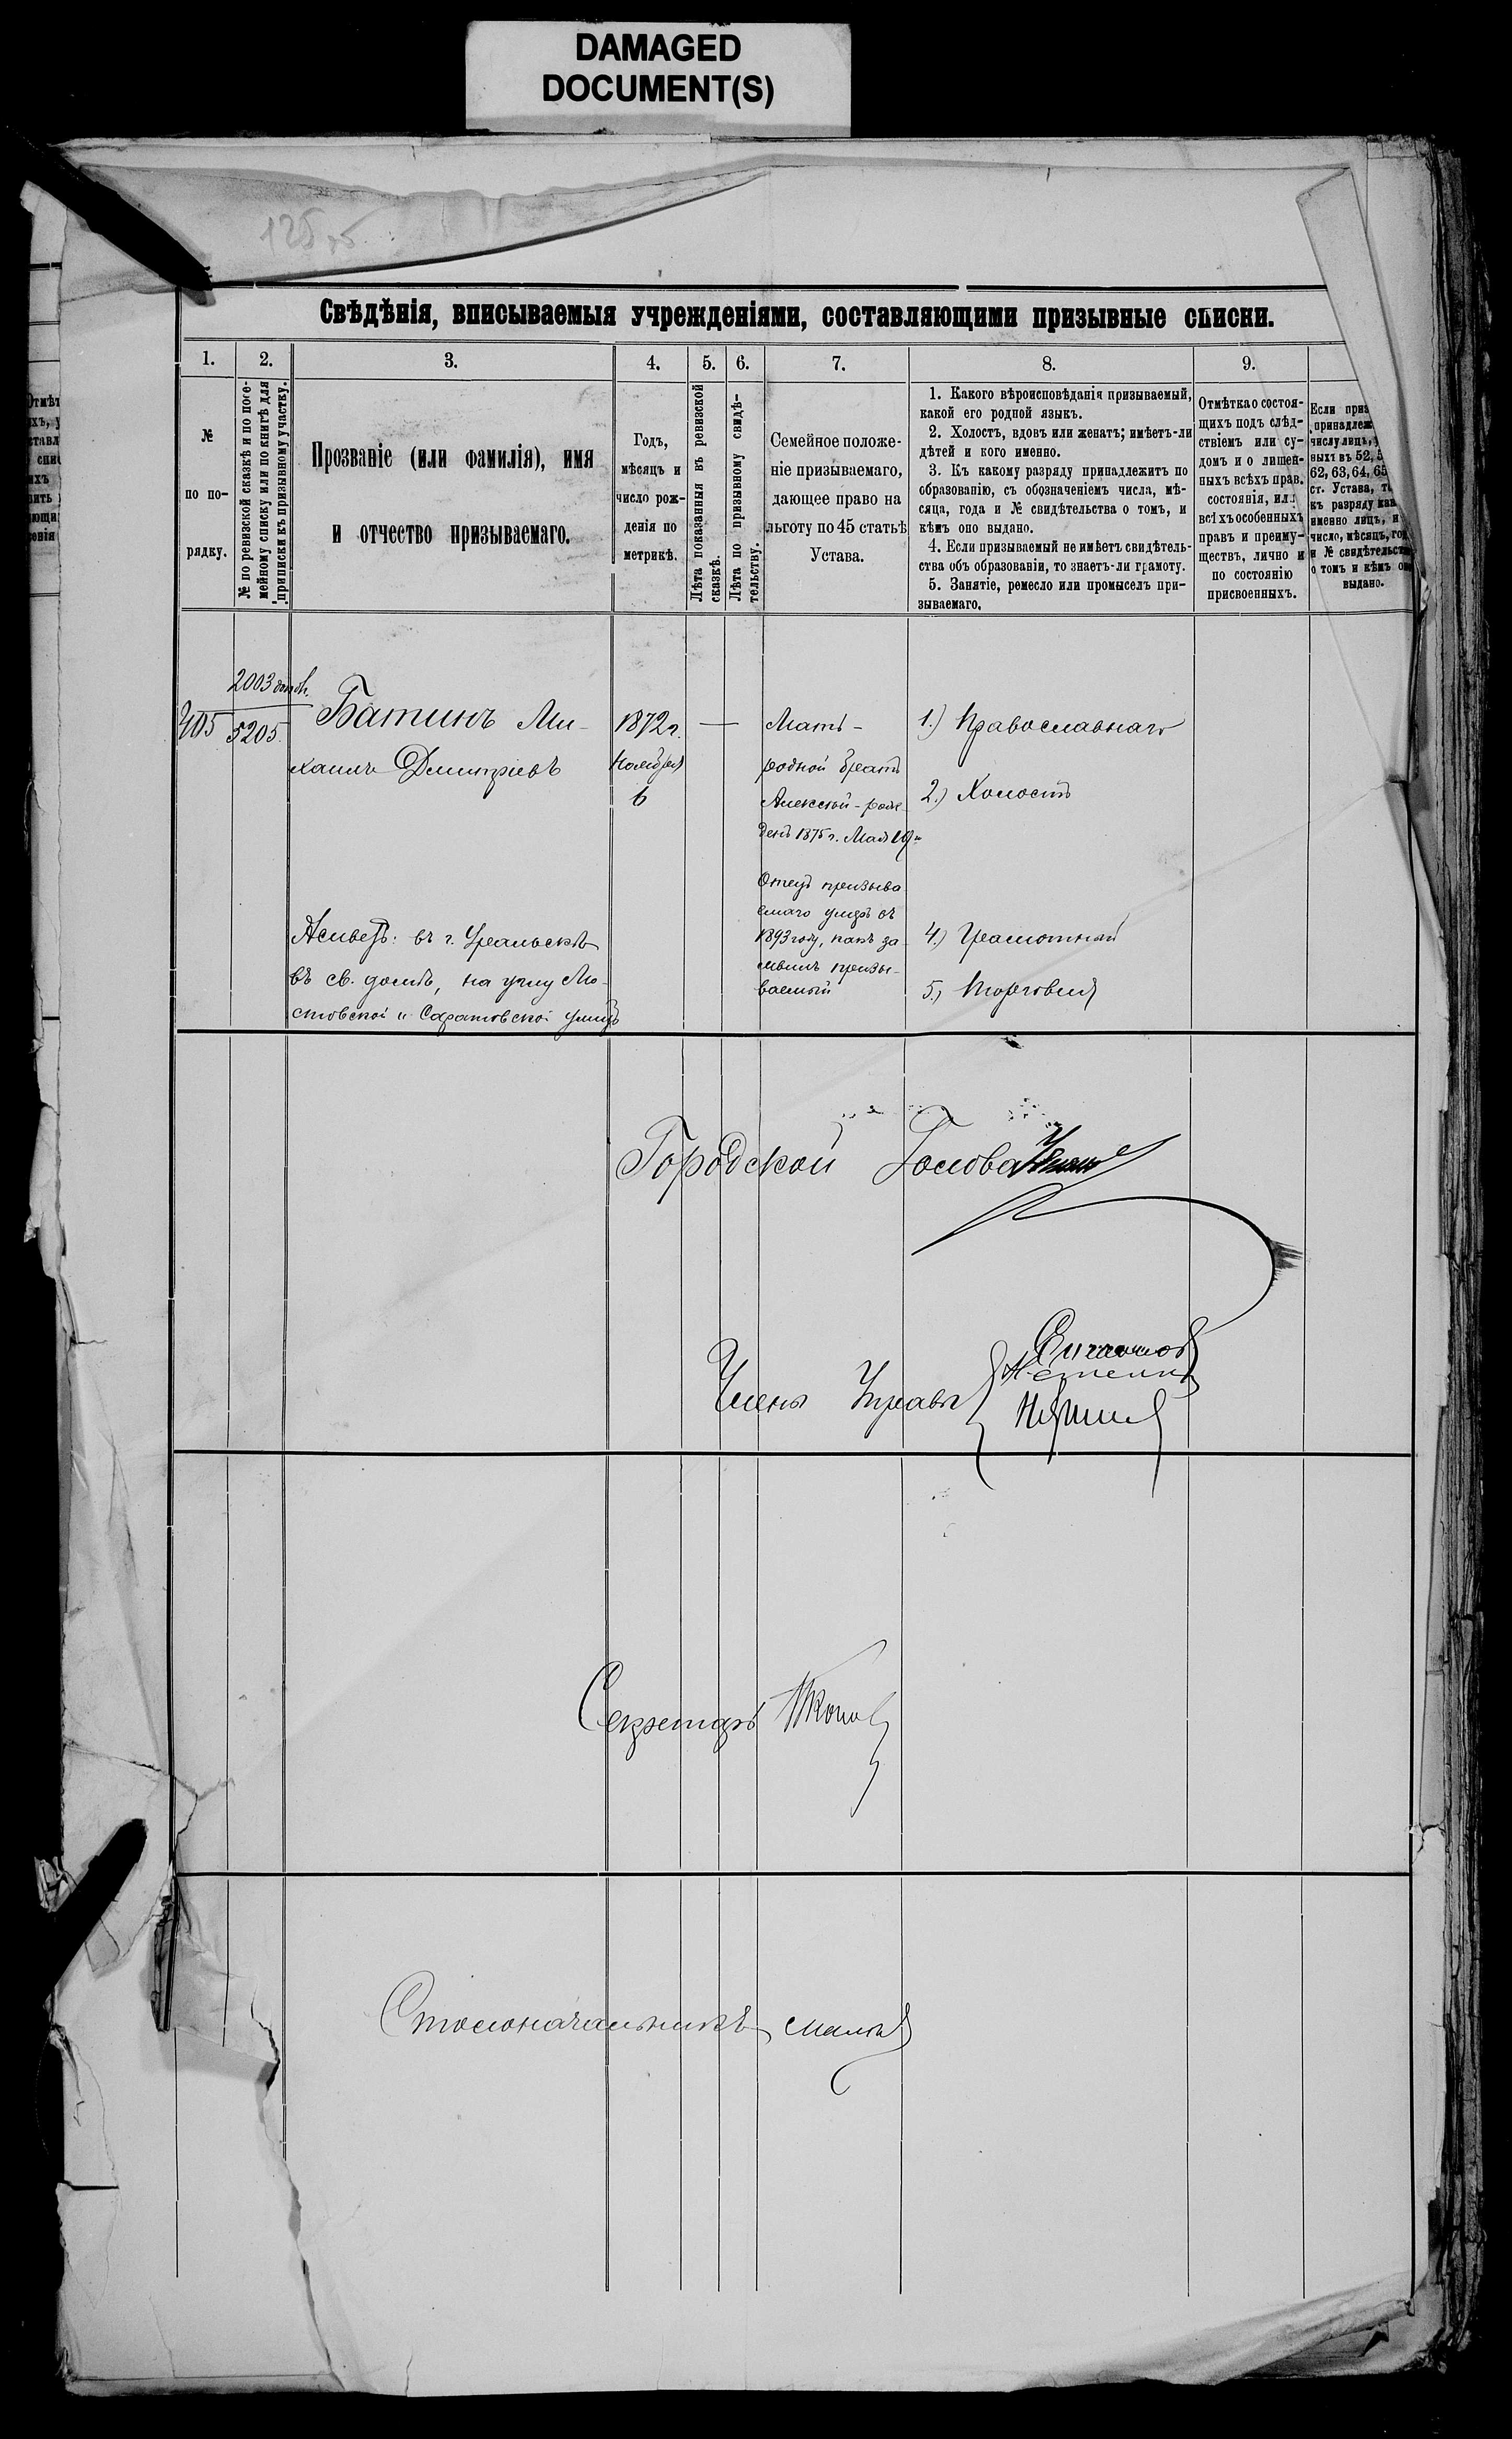 DAMAGED
DOCUMENT(S)
Свѣдѣнія, вписываемыя учрежденіями, составляющими призывные списки.
1.
2.
3.
4.
5.
6.
7.
8.
9.
№
по по-
рядку.
№ по ревизской сказкѣ и по посе-
мейному списку или по книгѣ для
приписки къ призывному участку.
Прозваніе (или фамилія), имя
и отчество призываемаго.
Годъ,
мѣсяцъ и
число рож-
денія по
метрикѣ.
Лѣта показанныя въ ревизской
сказкѣ.
Лѣта по призывному свидѣ-
тельству.
Семейное положе-
ніе призываемаго,
дающее право на
льготу по 45 статьѣ
Устава.
1. Какого вѣроисповѣданія призываемый,
какой его родной языкъ.
2. Холостъ, вдовъ или женатъ; имѣетъ-ли
дѣтей и кого именно.
3. Къ какому разряду принадлежитъ по
образованію, съ обозначеніемъ числа, мѣ-
сяца, года и № свидѣтельства о томъ, и
кѣмъ оно выдано.
4. Если призываемый не имѣетъ свидѣтель-
ства объ образованіи, то знаетъ-ли грамоту.
5. Занятіе, ремесло или промыселъ при-
зываемаго.
Отмѣтка о состоя-
щихъ подъ слѣд-
ствіемъ или су-
домъ и о лишен-
ныхъ всѣхъ прав.
состоянія, ил.
всѣхъ особенныхъ
правъ и преиму-
ществъ, лично и
по состоянію
присвоенныхъ.
Если приз
принадлеж
числу лицъ,
ныхъ въ 52, 5
62, 63, 64, 65
ст. Устава, т
къ разряду как
именно лицъ, и
число, мѣсяцъ, год
и № свидѣтельст
о томъ и кѣмъ о
выдано.
405
2003
5205.
Батинъ Ми-
хаилъ Дмитріевъ
1872 г.
Ноября
6
—
Мать-
родной братъ
Алексѣй - рож-
денъ 1875 г. Мая 19
Отецъ призыва
емаго умеръ въ
1893 году, какъ за-
явилъ призы-
ваемый
1.) Православнаго
2.) Холостъ
4.) Грамотный
5.) Торговля
Живетъ: въ г. Уральскѣ
въ св. домѣ, на углу Мо-
стовской и Саратовской улицъ
Городской Голова
Члены Управы
Секретарь
Столоначальникъ